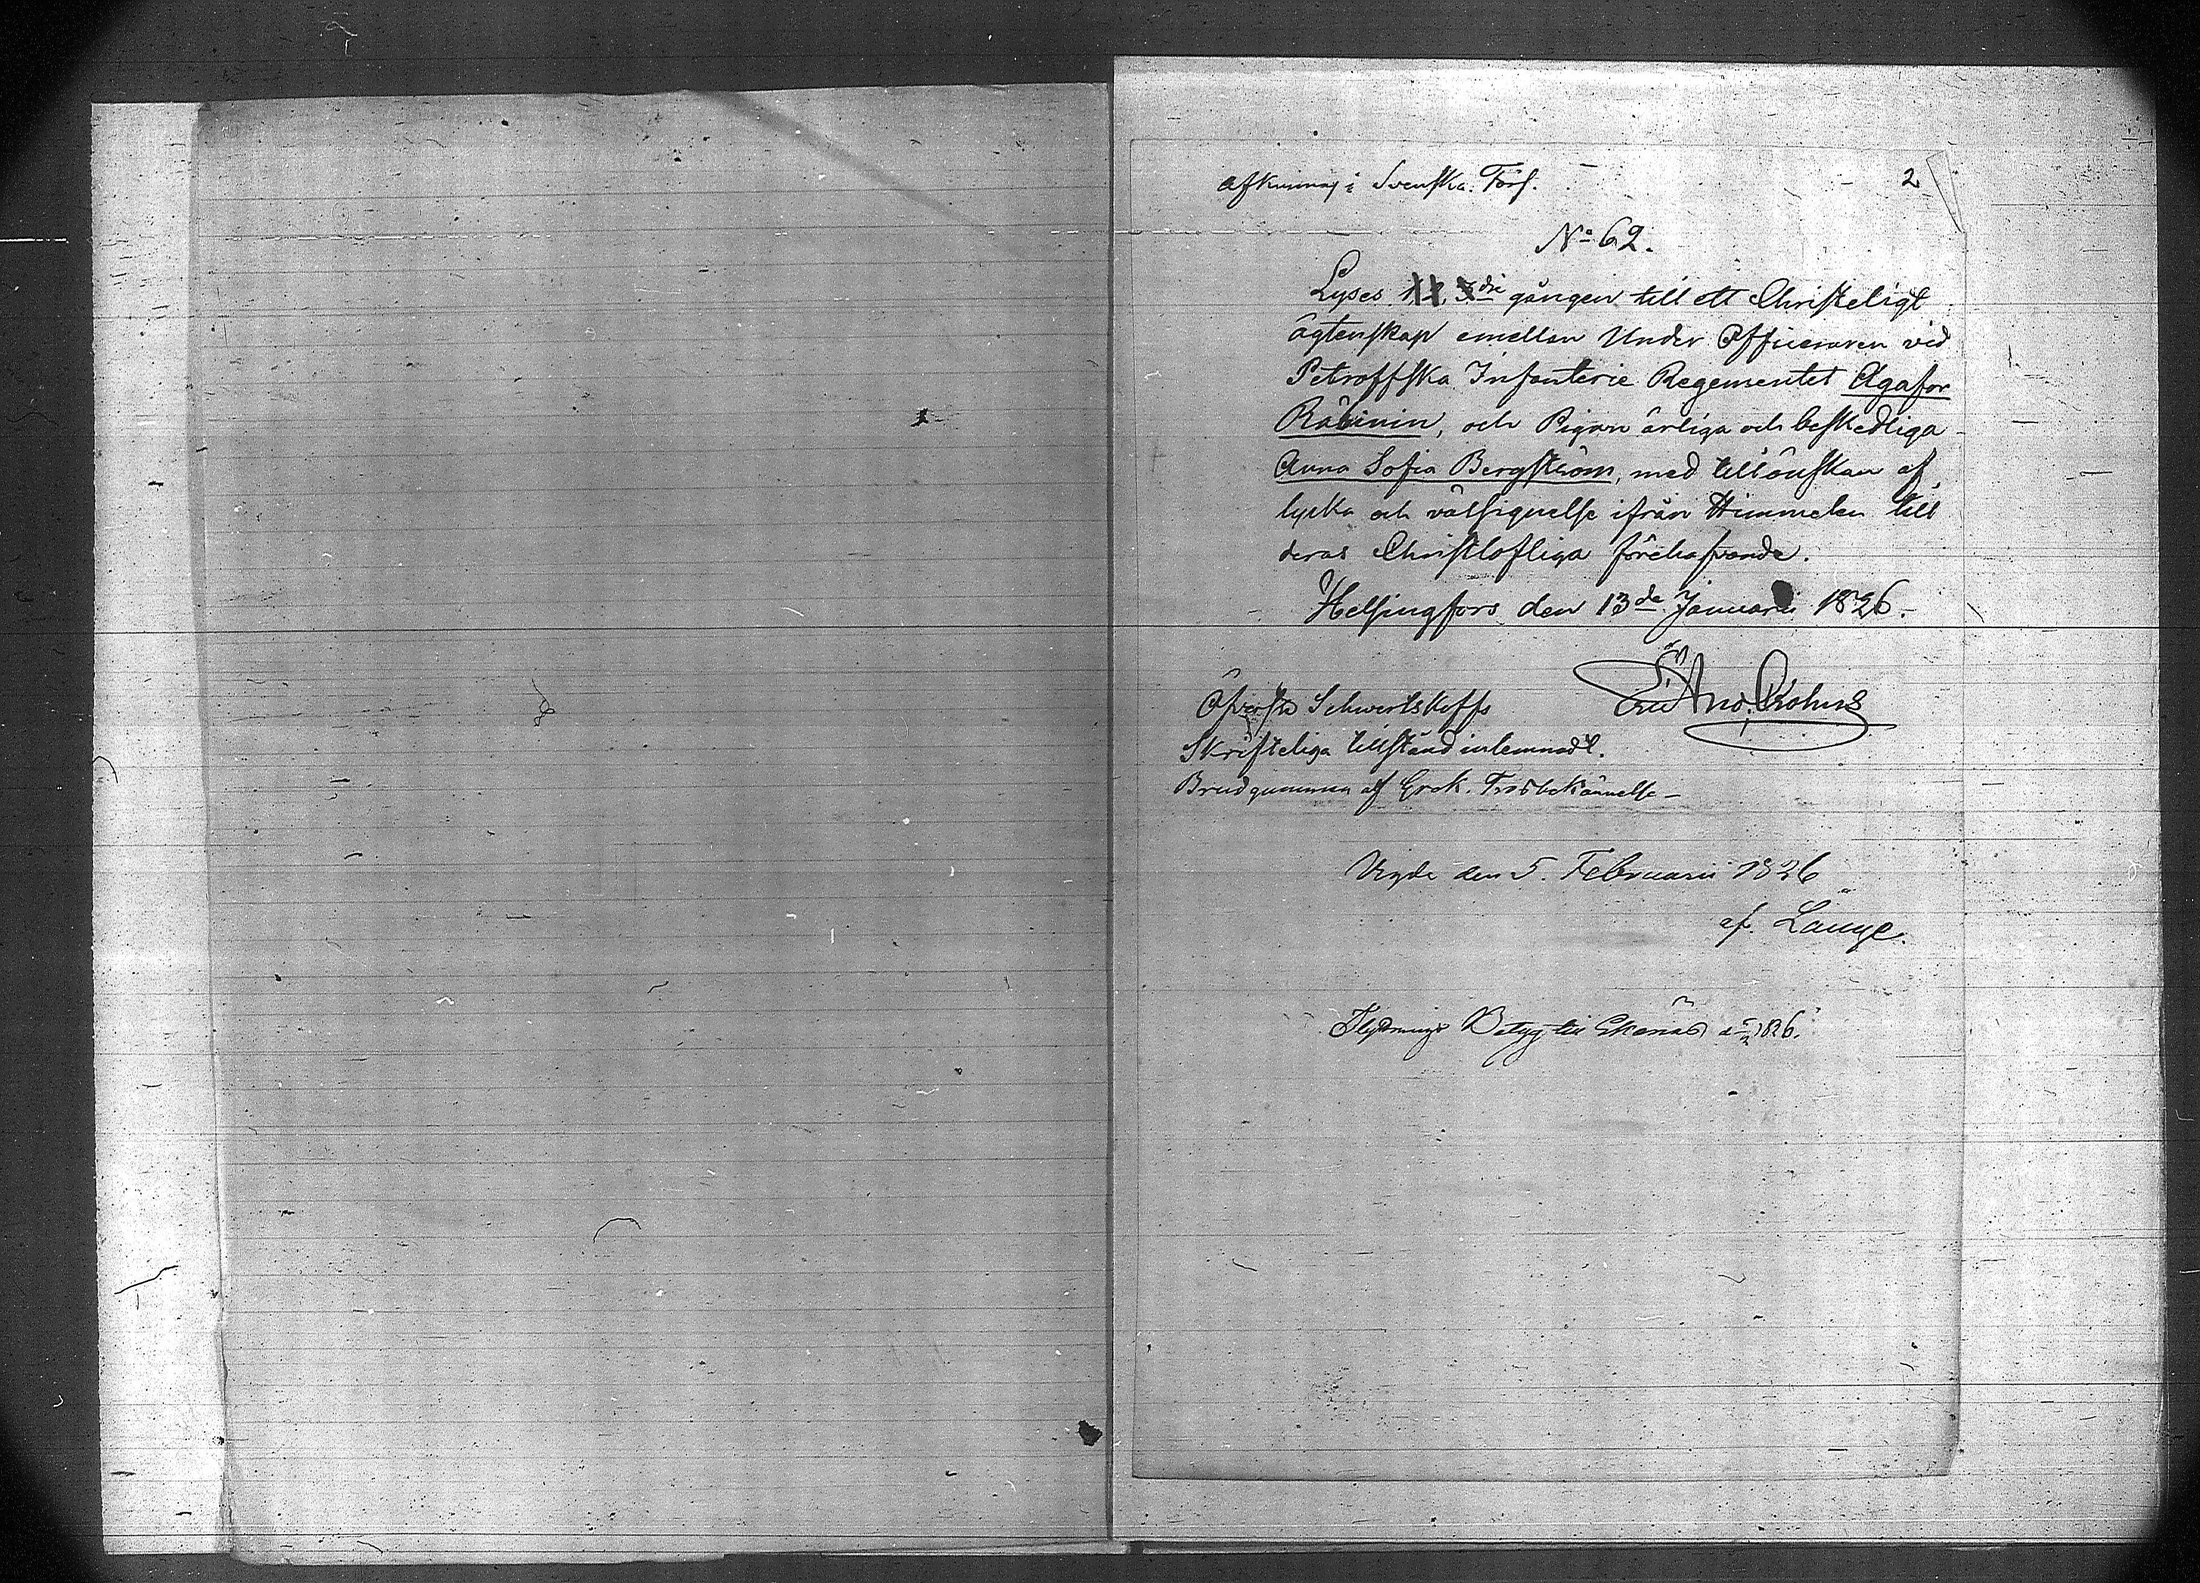 Afkunnas i Svenska Förs.
2
No 62.
Lyses 1, 2, 3dje gången till ett Christeligt
ägtenskap emellan Under Officeraren vid
Petroffska Infanterie Regementet Agafor
Räbinin, och Pigan ärliga och beskedliga
Anna Sofia Bergström, med tillönskan af
lycka och välsignelse ifrån Himmelen till
deras Christlofliga förehafvande.
Helsingfors den 13de Januarii 1826.
Öfverste Schwertskoffs
Skrifteliga tillstånd inlemnadt.
Brudgummen af Grek. Trosbekännelse
Vigde den 5. Februarii 1826
af. Långe.
Flyttnings Betyg till Ekenäs d 1826.